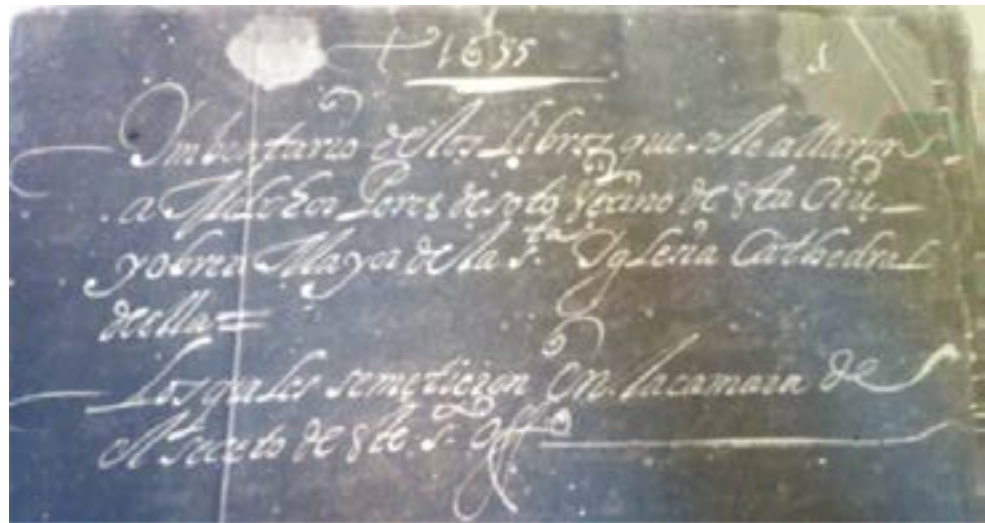 1655
Ymbentario de los Libros que se le allaron
a Melchor Peres de soto Vecino de esta Ciu.
y obrero Mayor de la S.ta Yglesia Cathedral
de ella =
Los quales se metieron En la camara de
el secreto de este S.to Off.o